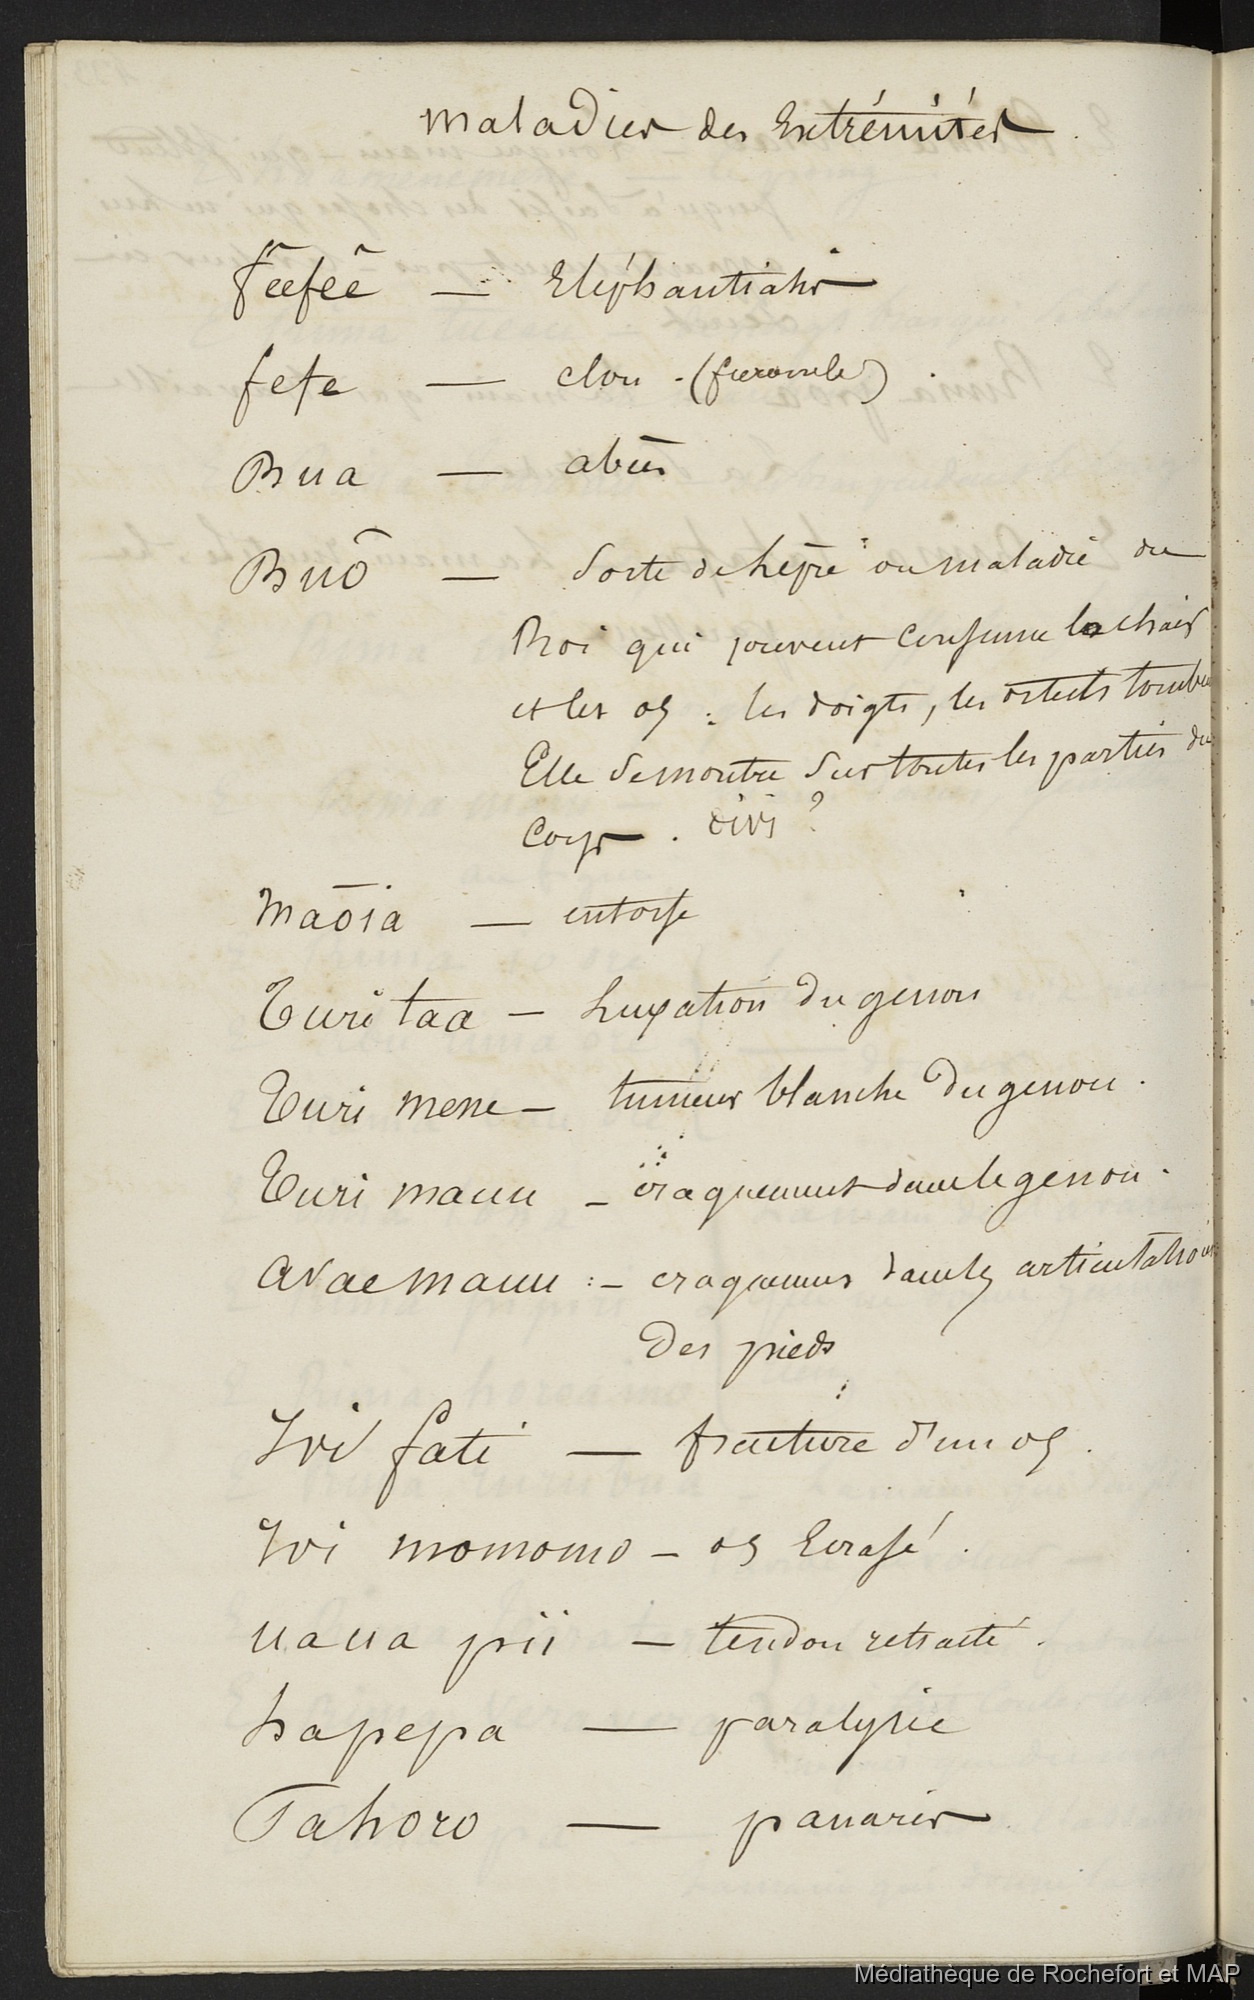 maladies des Extrémités.
féeféé — Eléphantiasis
fefe — clou. (furoncle).
Bua — abcès
Buô — Sorte de lèpre ou maladie du
Roi qui souvent consume la chair
et les os : les doigts, les orteils tombent
Elle se montre sur toutes les parties du
corps. oivi ?
māoia — entorse
Turi taa — Luxation du genou
Turi mene — tumeur blanche du genou.
Turi mauu — craquement dans le genou.
avae mauu :— craquement dans les articulations
des pieds
Ivi fati — fracture d'un os.
Ivi momomo — os Ecrasé.
uaua pii — tendon retracté.
hapepa — paralysie
Tahoro — panaris
Médiathèque de Rochefort et MAP